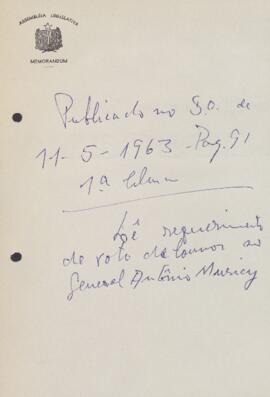 ASSEMBLÉIA LEGISLATIVA
MEMORANDUM
Publicado no D.O. de
11-5-1963 - Pag. 91
1ª Coluna
Lê requerimento
de voto de louvor ao
General Antônio Muricy